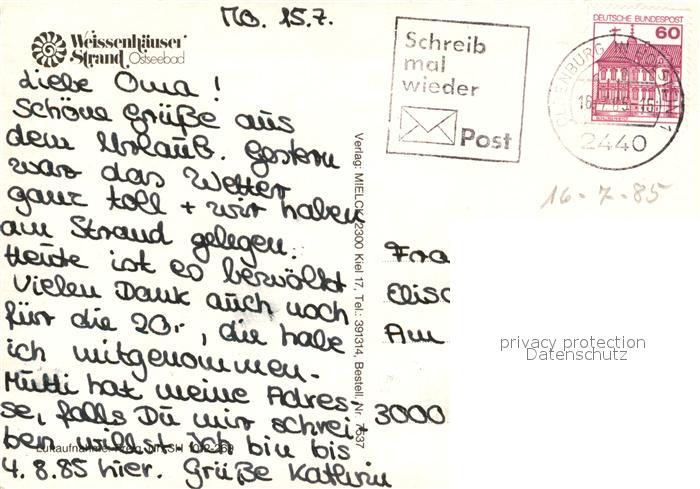 Mo. 15.7.
Weissenhäuser
Strand Ostseebad
Liebe Oma!
Schöne Grüße aus
dem Urlaub. Gestern
war das Wetter
ganz toll + wir haben
am Strand gelegen.
Heute ist es bewölkt
Vielen Dank auch noch
für die 20,-, die habe
ich mitgenommen.
Mutti hat meine Adres-
se, falls Du mir schrei-
ben willst. Ich bin bis
4.8.85 hier. Grüße Kathrin
Verlag: MIELCK, 2300 Kiel 17, Tel.: 391314, Bestell. Nr. 7537
Schreib
mal
wieder
Post
DEUTSCHE BUNDESPOST
60
OLDENBURG IN HOLSTEIN 1
2440
16-7-85
Fra
Elisa
Am
3000
privacy protection
Datenschutz